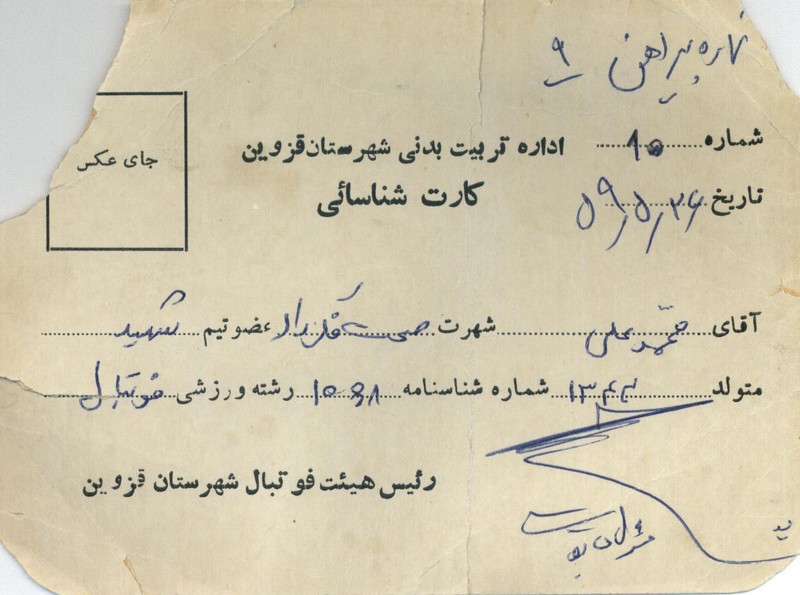 نمره پیراهن ۹
شماره ۱۰ اداره تربیت بدنی شهرستان قزوین
جای عکس
کارت شناسائی
تاریخ ۵۹/۵/۲۶
آقای محمدعلی شهرت صحت گفتار عضو تیم شهید
متولد ۱۳۴۲ شماره شناسنامه ۱۰۹۸ رشته ورزشی فوتبال
رئیس هیئت فوتبال شهرستان قزوین